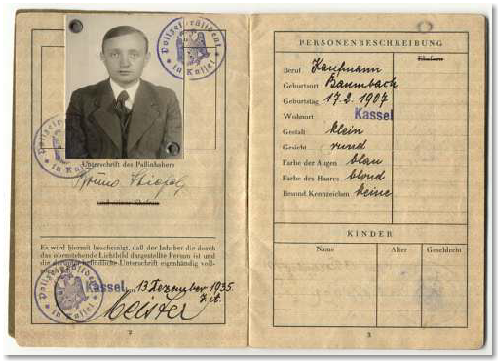 Polizeipräsident
in Kassel
Unterschrift des Paßinhabers
Bruno
und seiner Ehefrau
Es wird hiermit bescheinigt, daß der Inhaber die durch
das vorstehende Lichtbild dargestellte Person ist und
die darunter befindliche Unterschrift eigenhändig voll-
Polizeipräsident
in Kassel
Kassel, den 13 Dezember 1935.
Meister
2
PERSONENBESCHREIBUNG
Ehefrau
Beruf Kaufmann
Geburtsort Baumbach
Geburtstag 17.2.1907
Wohnort Kassel
Gestalt klein
Gesicht rund
Farbe der Augen blau
Farbe des Haares blond
Besond. Kennzeichen keine
KINDER
Name Alter Geschlecht
3